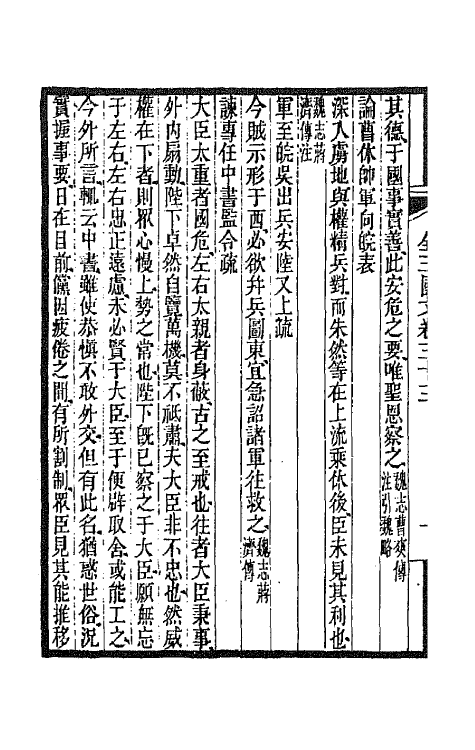 其德于國事實善此安危之要唯聖恩察之魏志曹爽傳
注引魏略
論曹休帥軍向皖表
深入虜地與權精兵對而朱然等在上流乘休後臣未見其利也
魏志蔣
濟傳注
軍至皖吳出兵安陸又上疏
今賊示形于西必欲幷兵圖東宜急詔諸軍往救之魏志蔣
濟傳
諫專任中書監令疏
大臣太重者國危左右太親者身蔽古之至戒也往者大臣秉事
外內扇動陛下卓然自覽萬機莫不祗肅夫大臣非不忠也然威
權在下者則眾心慢上勢之常也陛下旣已察之于大臣願無忘
于左右左右忠正遠慮未必賢于大臣至于便辟取合或能工之
今外所言輒云中書雖使恭慎不敢外交但有此名猶惑世俗況
實握事要日在目前儻因疲倦之閒有所割制眾臣見其能推移
全三國文卷三十三
一